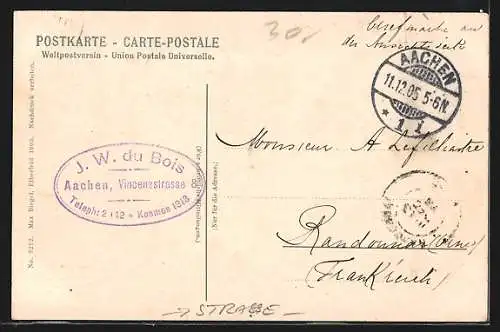 30,
Briefmarke an
der Ansichtsseite
POSTKARTE - CARTE-POSTALE
Weltpostverein - Union Postale Universelle.
AACHEN
11.12.05 5-6N.
* 1 I.
J. W. du Bois
Aachen, Vincenzstrasse 8
Teleph: 2112 - Kosmos 1913
No. 9212. Max Biegel, Elberfeld 1905. Nachdruck verboten.
(Nur für die Adresse.)
Monsieur A Lefilliatre
Randonnai (Orne)
(Frankreich)
→ STRAßE -